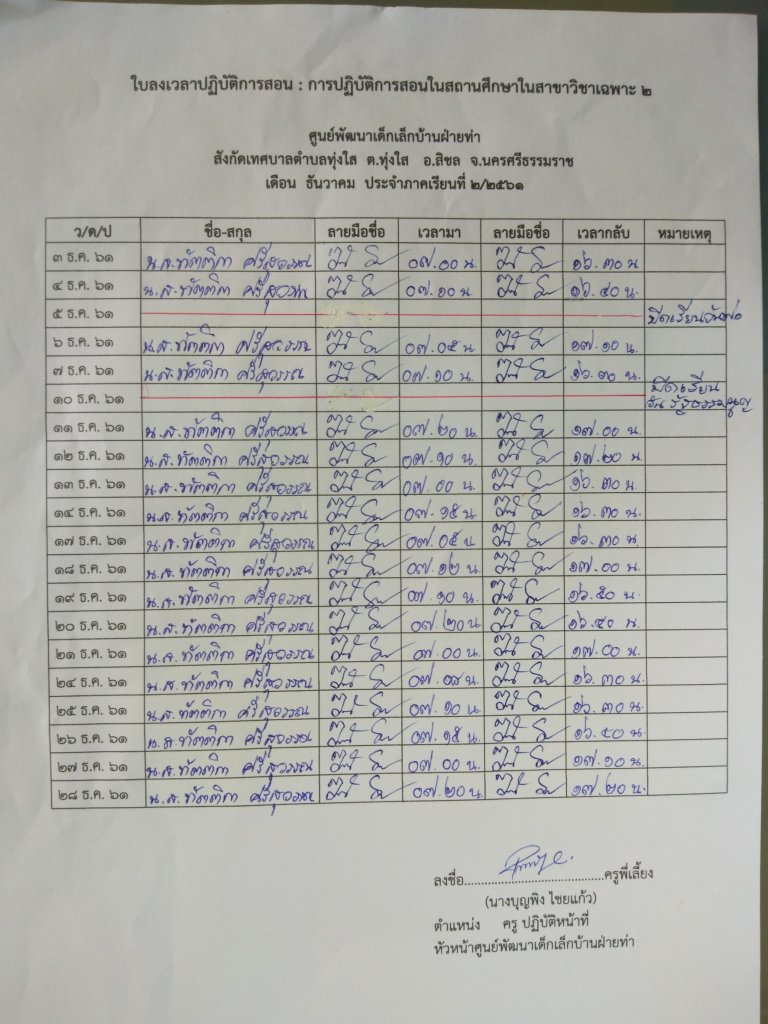 ใบลงเวลาปฏิบัติการสอน : การปฏิบัติการสอนในสถานศึกษาในสาขาวิชาเฉพาะ ๒
ศูนย์พัฒนาเด็กเล็กบ้านฝ่ายท่า
สังกัดเทศบาลตำบลทุ่งใส ต.ทุ่งใส อ.สิชล จ.นครศรีธรรมราช
เดือน ธันวาคม ประจำภาคเรียนที่ ๒/๒๕๖๑
ว/ด/ป ชื่อ-สกุล ลายมือชื่อ เวลามา ลายมือชื่อ เวลากลับ หมายเหตุ
๓ ธ.ค. ๖๑ น.ส.ทัตติกา ศรีสุวรรณ ๐๗.๐๐ น. ๑๖.๓๐ น.
๔ ธ.ค. ๖๑ น.ส.ทัตติกา ศรีสุวรรณ ๐๗.๑๐ น. ๑๖.๔๐ น.
๕ ธ.ค. ๖๑ ปิดเรียนวันพ่อ
๖ ธ.ค. ๖๑ น.ส.ทัตติกา ศรีสุวรรณ ๐๗.๐๕ น. ๑๗.๑๐ น.
๗ ธ.ค. ๖๑ น.ส.ทัตติกา ศรีสุวรรณ ๐๗.๑๐ น. ๑๖.๓๐ น.
๑๐ ธ.ค. ๖๑ ปิดเรียน
วันรัฐธรรมนูญ
๑๑ ธ.ค. ๖๑ น.ส.ทัตติกา ศรีสุวรรณ ๐๗.๒๐ น. ๑๗.๐๐ น.
๑๒ ธ.ค. ๖๑ น.ส.ทัตติกา ศรีสุวรรณ ๐๗.๑๐ น. ๑๗.๒๐ น.
๑๓ ธ.ค. ๖๑ น.ส.ทัตติกา ศรีสุวรรณ ๐๗.๐๐ น. ๑๖.๓๐ น.
๑๔ ธ.ค. ๖๑ น.ส.ทัตติกา ศรีสุวรรณ ๐๗.๑๕ น. ๑๖.๓๐ น.
๑๗ ธ.ค. ๖๑ น.ส.ทัตติกา ศรีสุวรรณ ๐๗.๐๕ น. ๑๖.๓๐ น.
๑๘ ธ.ค. ๖๑ น.ส.ทัตติกา ศรีสุวรรณ ๐๗.๑๒ น. ๑๗.๐๐ น.
๑๙ ธ.ค. ๖๑ น.ส.ทัตติกา ศรีสุวรรณ ๐๗.๑๐ น. ๑๖.๕๐ น.
๒๐ ธ.ค. ๖๑ น.ส.ทัตติกา ศรีสุวรรณ ๐๗.๒๐ น. ๑๖.๔๐ น.
๒๑ ธ.ค. ๖๑ น.ส.ทัตติกา ศรีสุวรรณ ๐๗.๐๐ น. ๑๗.๐๐ น.
๒๔ ธ.ค. ๖๑ น.ส.ทัตติกา ศรีสุวรรณ น. ๑๖.๓๐ น.
๒๕ ธ.ค. ๖๑ น.ส.ทัตติกา ศรีสุวรรณ ๐๗.๑๐ น. ๑๖.๓๐ น.
๒๖ ธ.ค. ๖๑ น.ส.ทัตติกา ศรีสุวรรณ ๐๗.๑๕ น. ๑๖.๔๐ น.
๒๗ ธ.ค. ๖๑ น.ส.ทัตติกา ศรีสุวรรณ ๐๗.๐๐ น. ๑๗.๑๐ น.
๒๘ ธ.ค. ๖๑ น.ส.ทัตติกา ศรีสุวรรณ ๐๗.๒๐ น. ๑๗.๒๐ น.
ลงชื่อ........................................ครูพี่เลี้ยง
(นางบุญพิง ไชยแก้ว)
ตำแหน่ง ครู ปฏิบัติหน้าที่
หัวหน้าศูนย์พัฒนาเด็กเล็กบ้านฝ่ายท่า